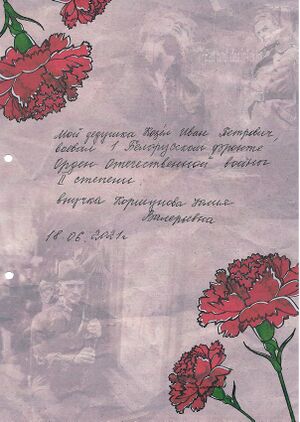 Мой дедушка Козел Иван Петрович,
воевал 1 Белорусском фронте
Орден Отечественной войны
II степени
внучка Коршунова Юлия
Валерьевна
18.06.2021г